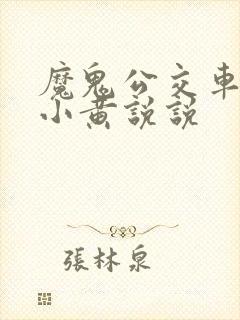 魔鬼公交車
小黃說說
張林泉